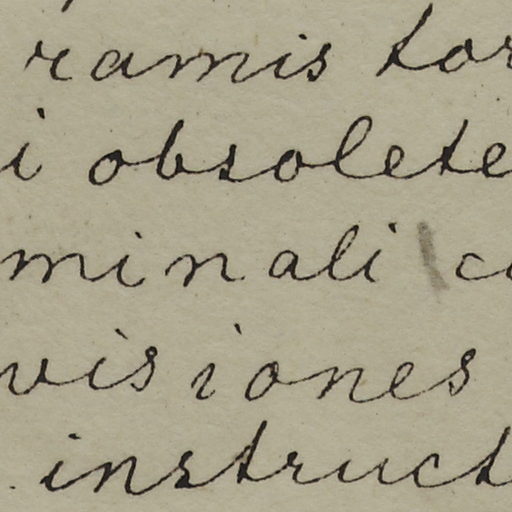 ramis tor
i obsolete
minali c
visiones
instruct